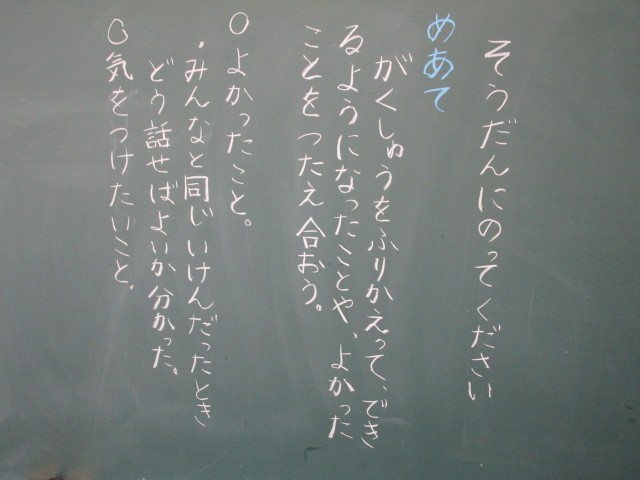 そうだんにのってください
めあて
がくしゅうをふりかえって、でき
るようになったことや、よかった
ことをつたえ合おう。
○よかったこと。
・みんなと同じいけんだったとき
どう話せばよいか分かった。
○気をつけたいこと。